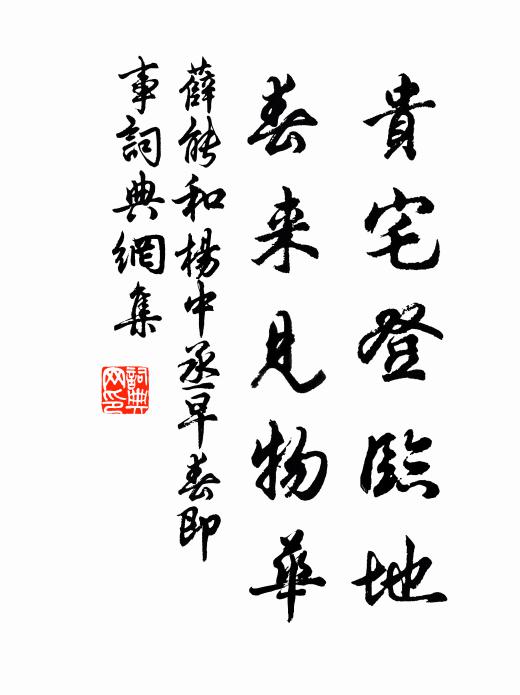 貴宅登臨地
春来見物華
薛能和楊中丞早春即
事詞典網集
詞典
网印